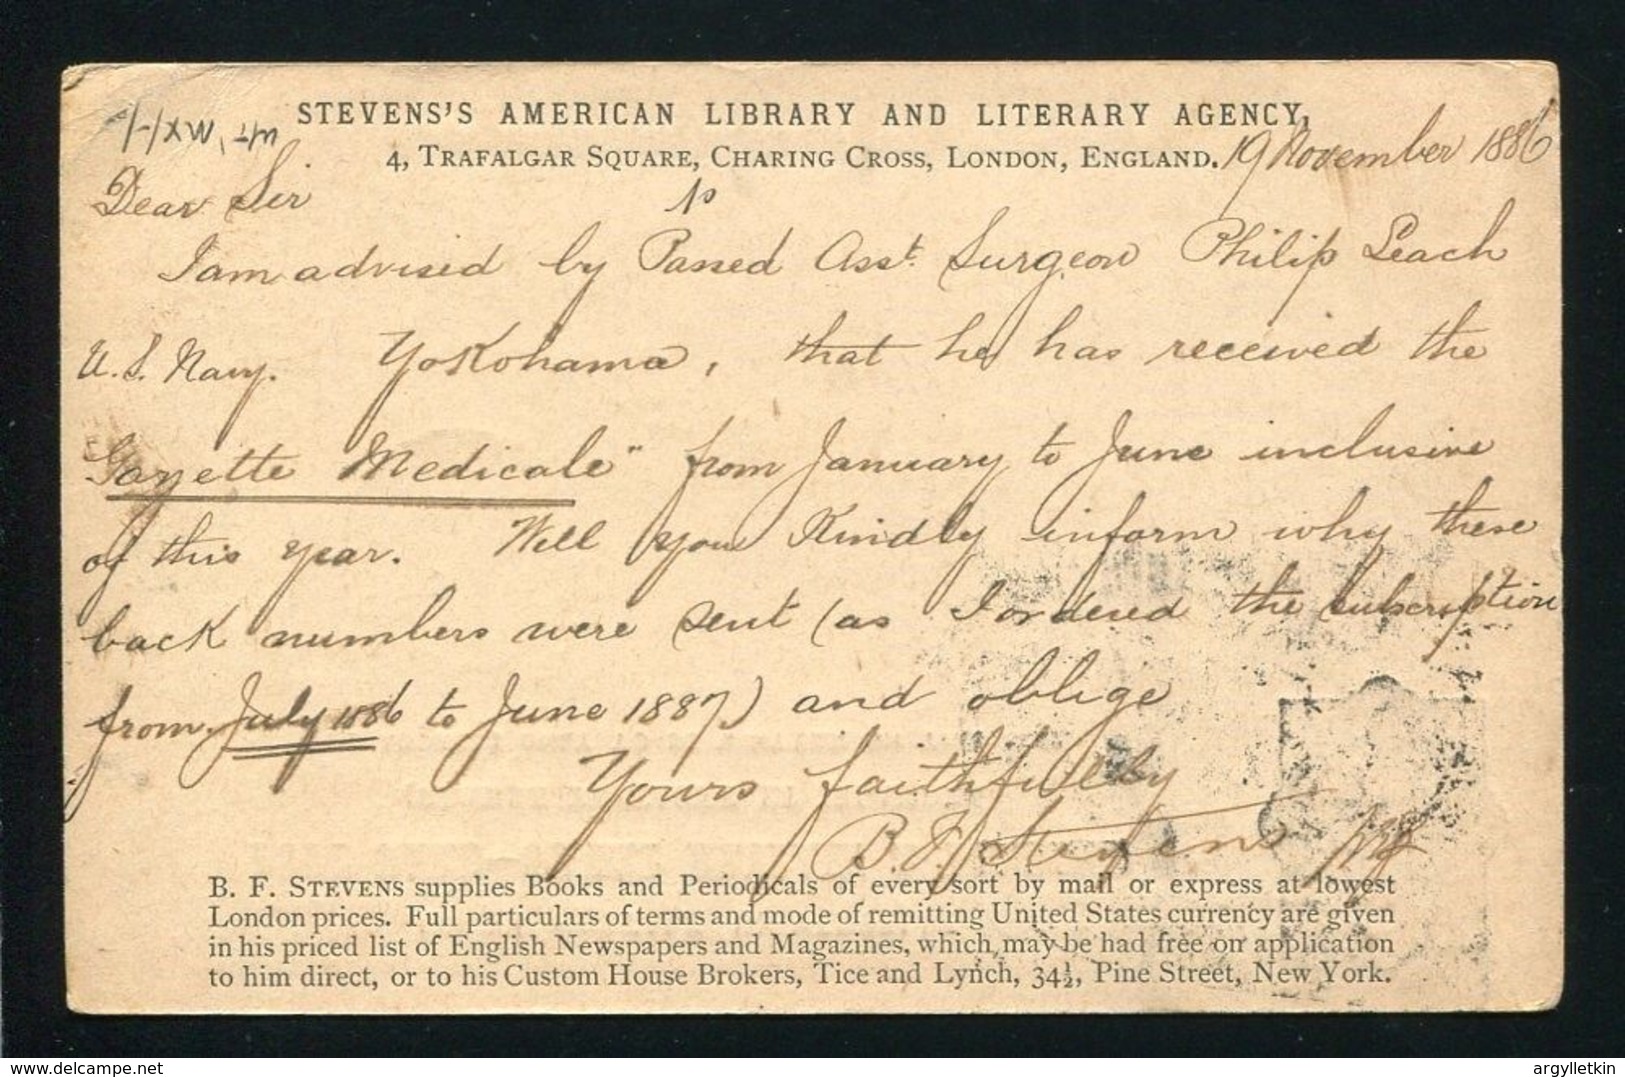 STEVENS'S AMERICAN LIBRARY AND LITERARY AGENCY,
4, TRAFALGAR SQUARE, CHARING CROSS, LONDON, ENGLAND. 19 November 1886
Dear Sir
I am advised by Passed Asst. Surgeon Philip Leach
U.S. Navy. Yokohama, that he has received the
Gazette Medicale" from January to June inclusive
of this year. Will you Kindly inform why these
back numbers were sent (as I ordered the subscription
from July 1886 to June 1887) and oblige
Yours faithfully
B. F. Stevens
B. F. STEVENS supplies Books and Periodicals of every sort by mail or express at lowest
London prices. Full particulars of terms and mode of remitting United States currency are given
in his priced list of English Newspapers and Magazines, which may be had free on application
to him direct, or to his Custom House Brokers, Tice and Lynch, 34½, Pine Street, New York.
www.delcampe.net
argylletkin